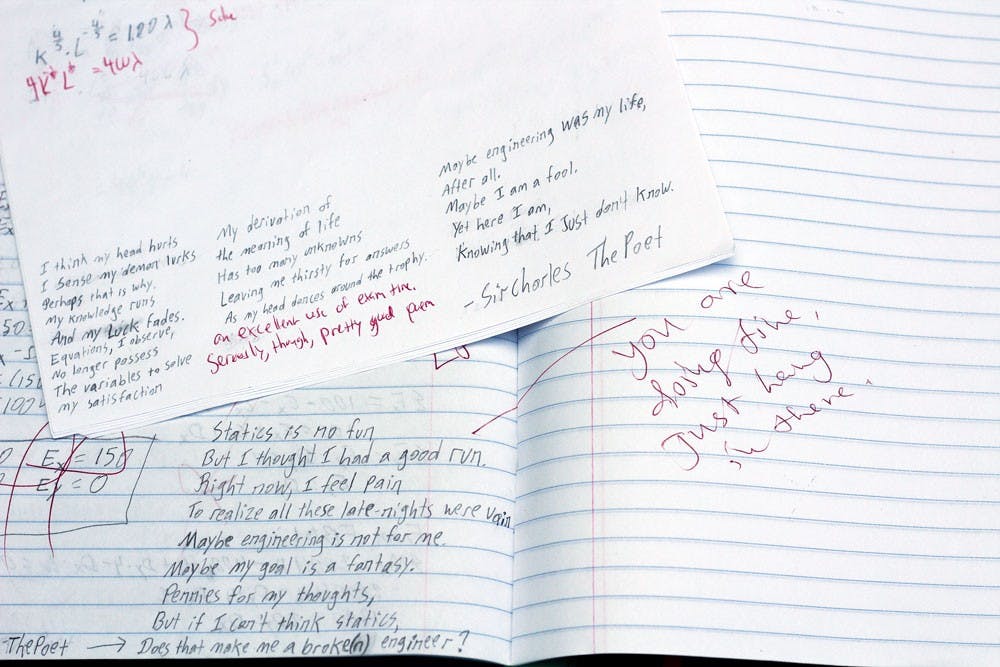 K^4/5 · L^-4/5 = 120 λ } Solve
= 400 λ
I think my head hurts
I sense my demon lurks
Perhaps that is why.
My knowledge runs
And my luck fades.
Equations, I observe,
No longer possess
The variables to solve
my satisfaction
My derivation of
the meaning of life
Has too many unknowns
Leaving me thirsty for answers
As my head dances around the trophy.
an excellent use of exam time.
Seriously, though, pretty good poem
Maybe engineering was my life,
After all.
Maybe I am a fool.
Yet here I am,
Knowing that I Just don't know.
- Sir Charles The Poet
Ex = 150
Ey = 0
Statics is no fun
But I thought I had a good run.
Right now, I feel pain
To realize all these late-nights were vain
Maybe engineering is not for me.
Maybe my goal is a fantasy.
Pennies for my thoughts,
But if I can't think statics,
The Poet → Does that make me a broke(n) engineer?
You are
doing fine,
Just hang
in there.